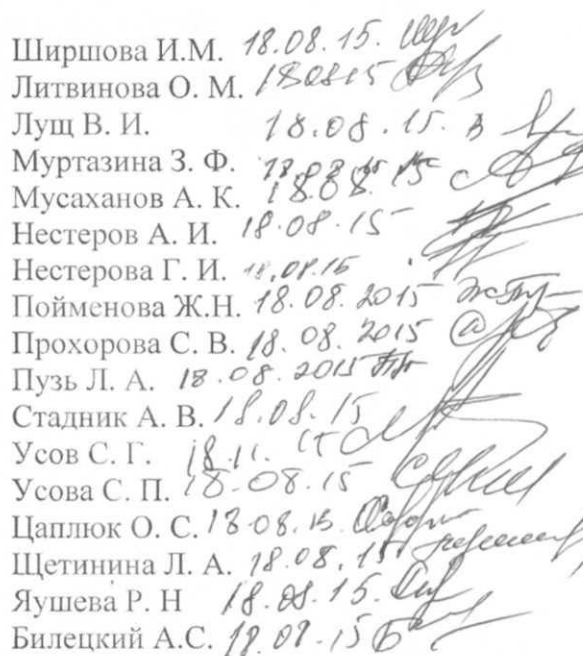 Ширшова И.М. 18.08.15.
Литвинова О. М. 180815
Лущ В. И. 18.08.15.
Муртазина З. Ф.
Мусаханов А. К. 18.08.15
Нестеров А. И. 18.08.15
Нестерова Г. И. 18.08.15
Пойменова Ж.Н. 18.08.2015
Прохорова С. В. 18.08.2015
Пузь Л. А. 18.08.2015
Стадник А. В. 18.08.15
Усов С. Г.
Усова С. П. 18.08.15
Цаплюк О. С. 18.08.15.
Щетинина Л. А. 18.08.15
Яушева Р. Н 18.08.15.
Билецкий А.С. 18.08.15